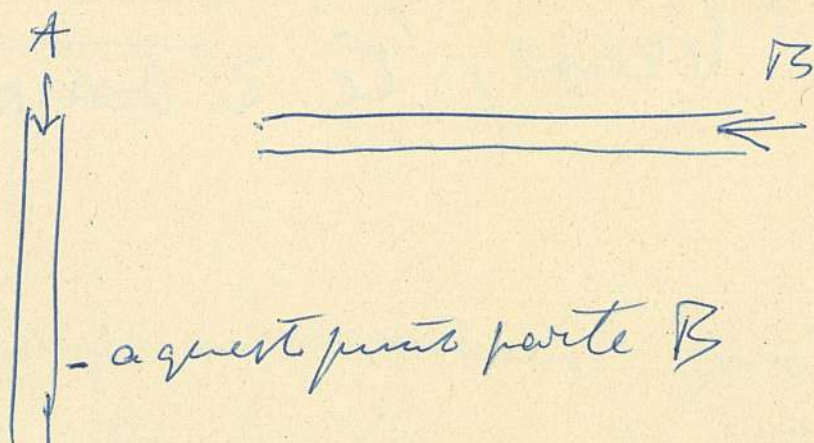 A
B
- a questo punto parte B